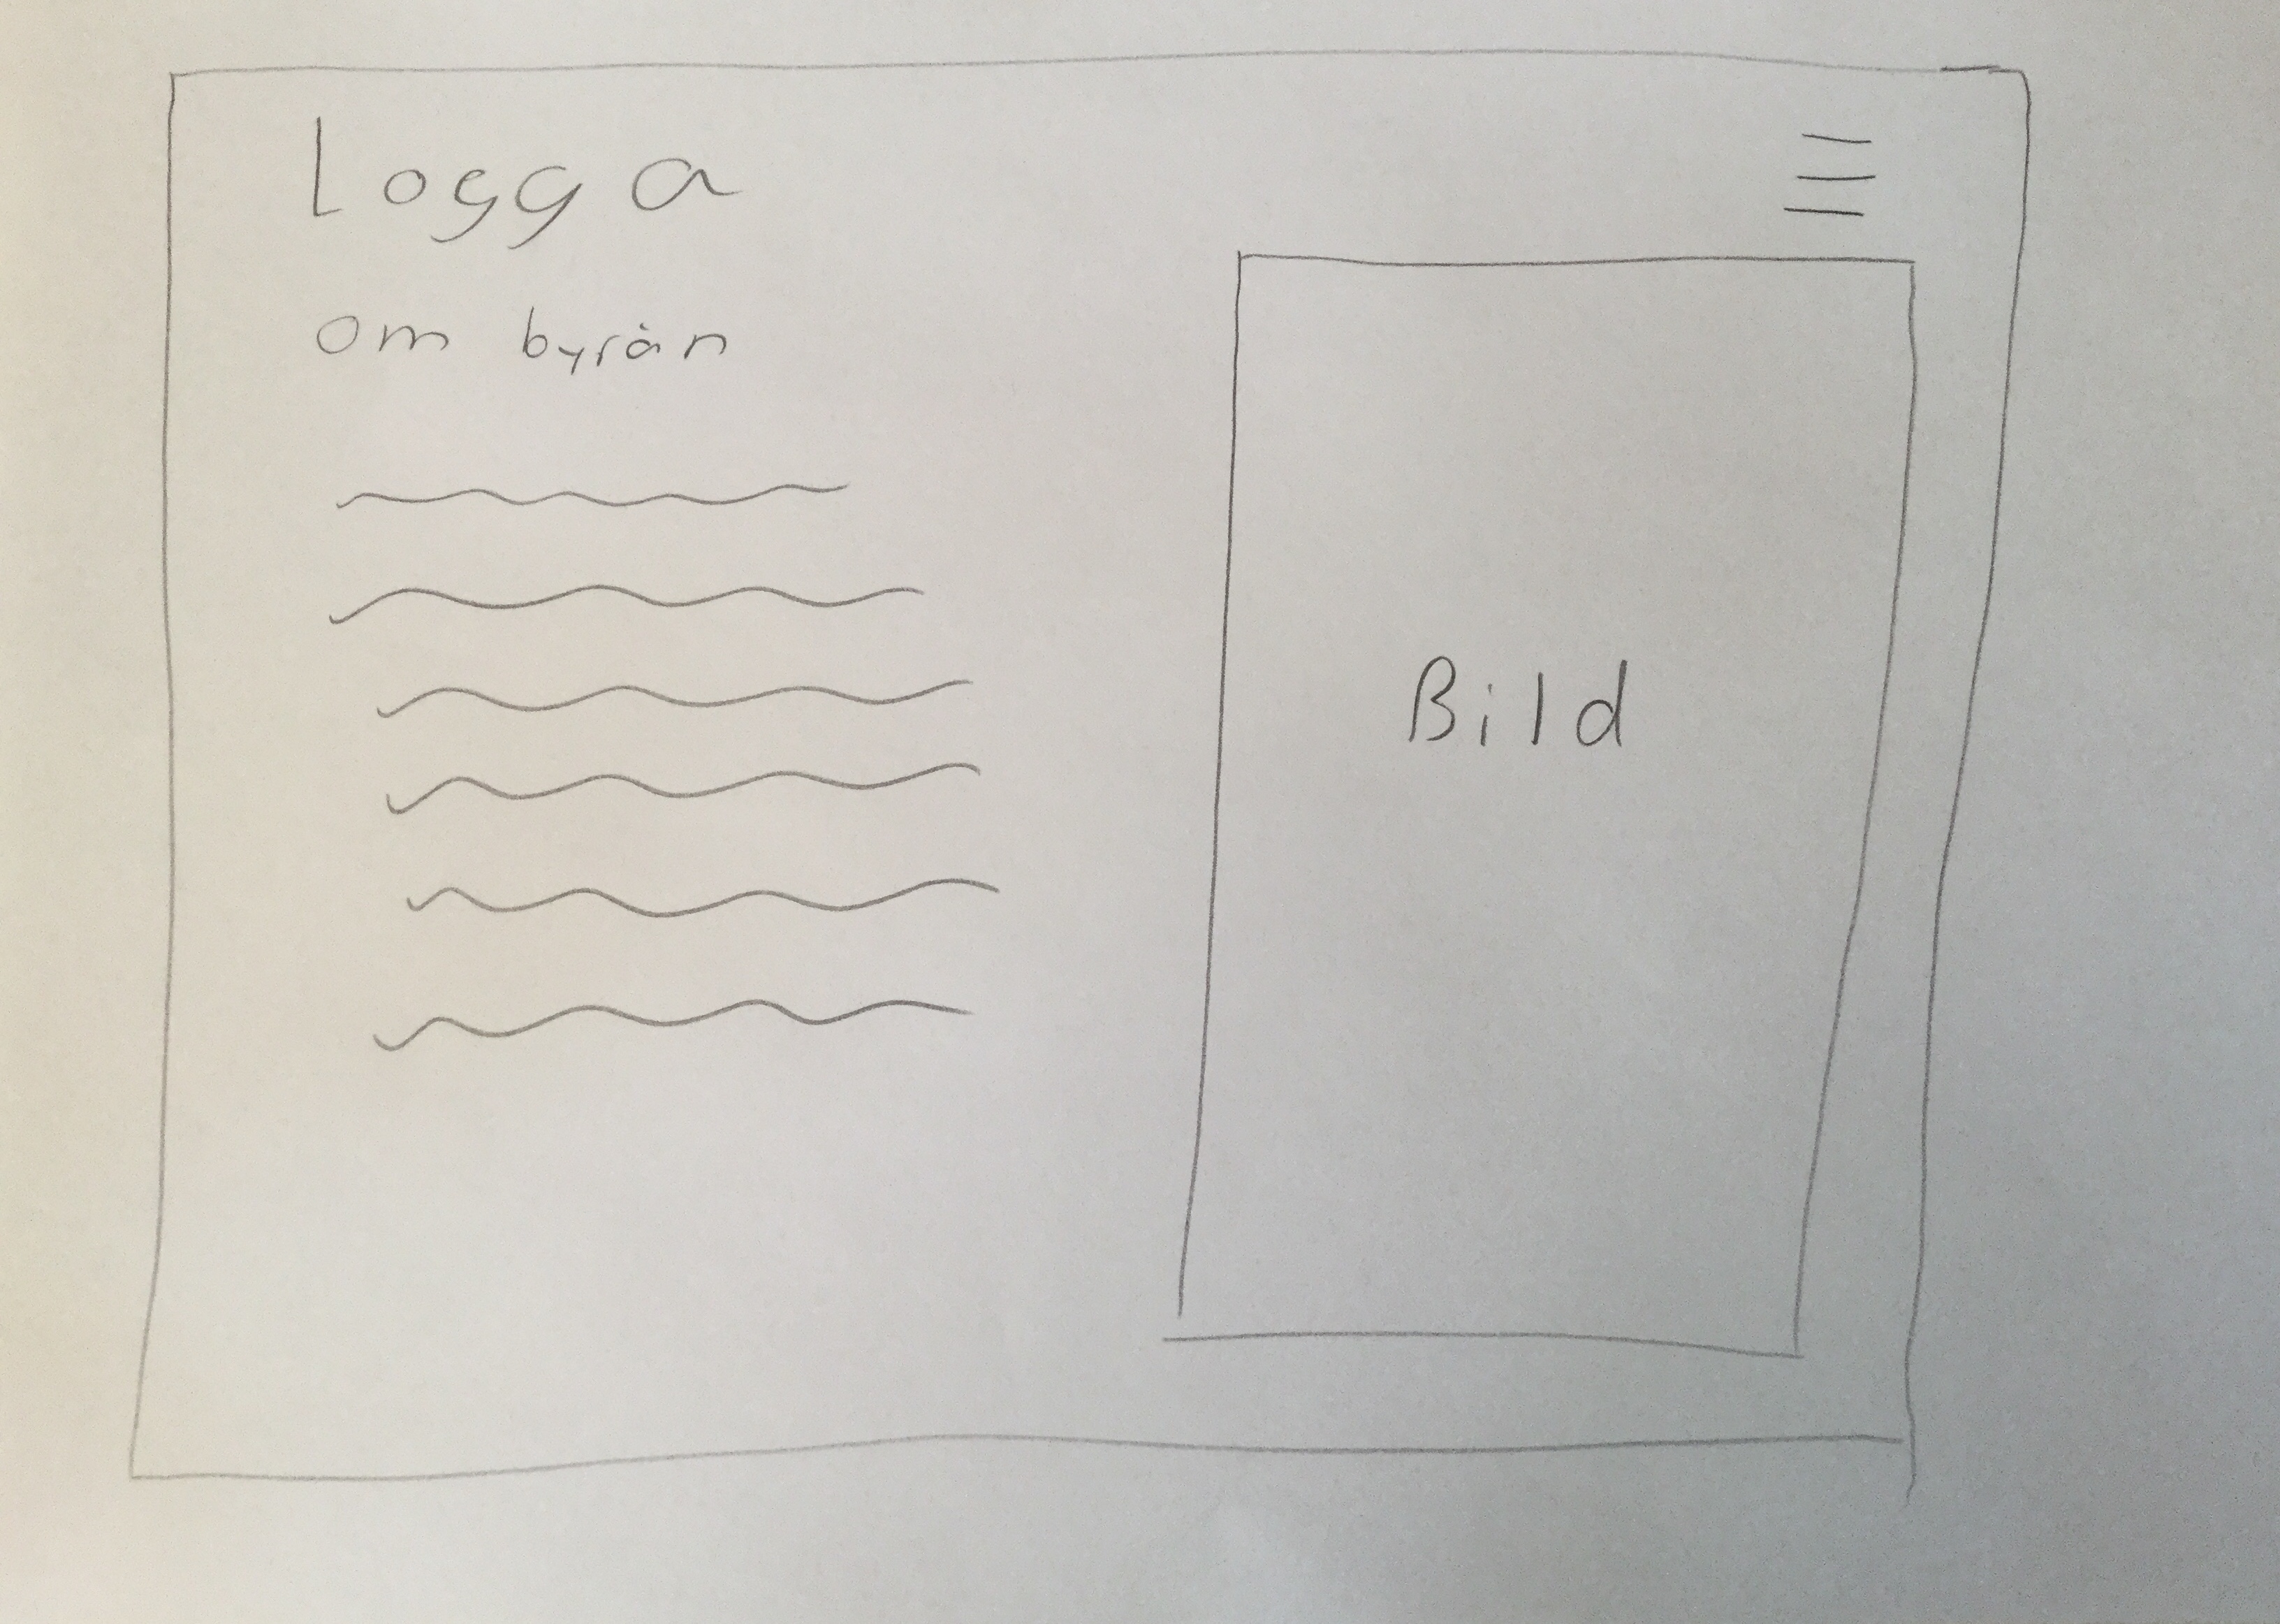 Logga
om byrån
Bild